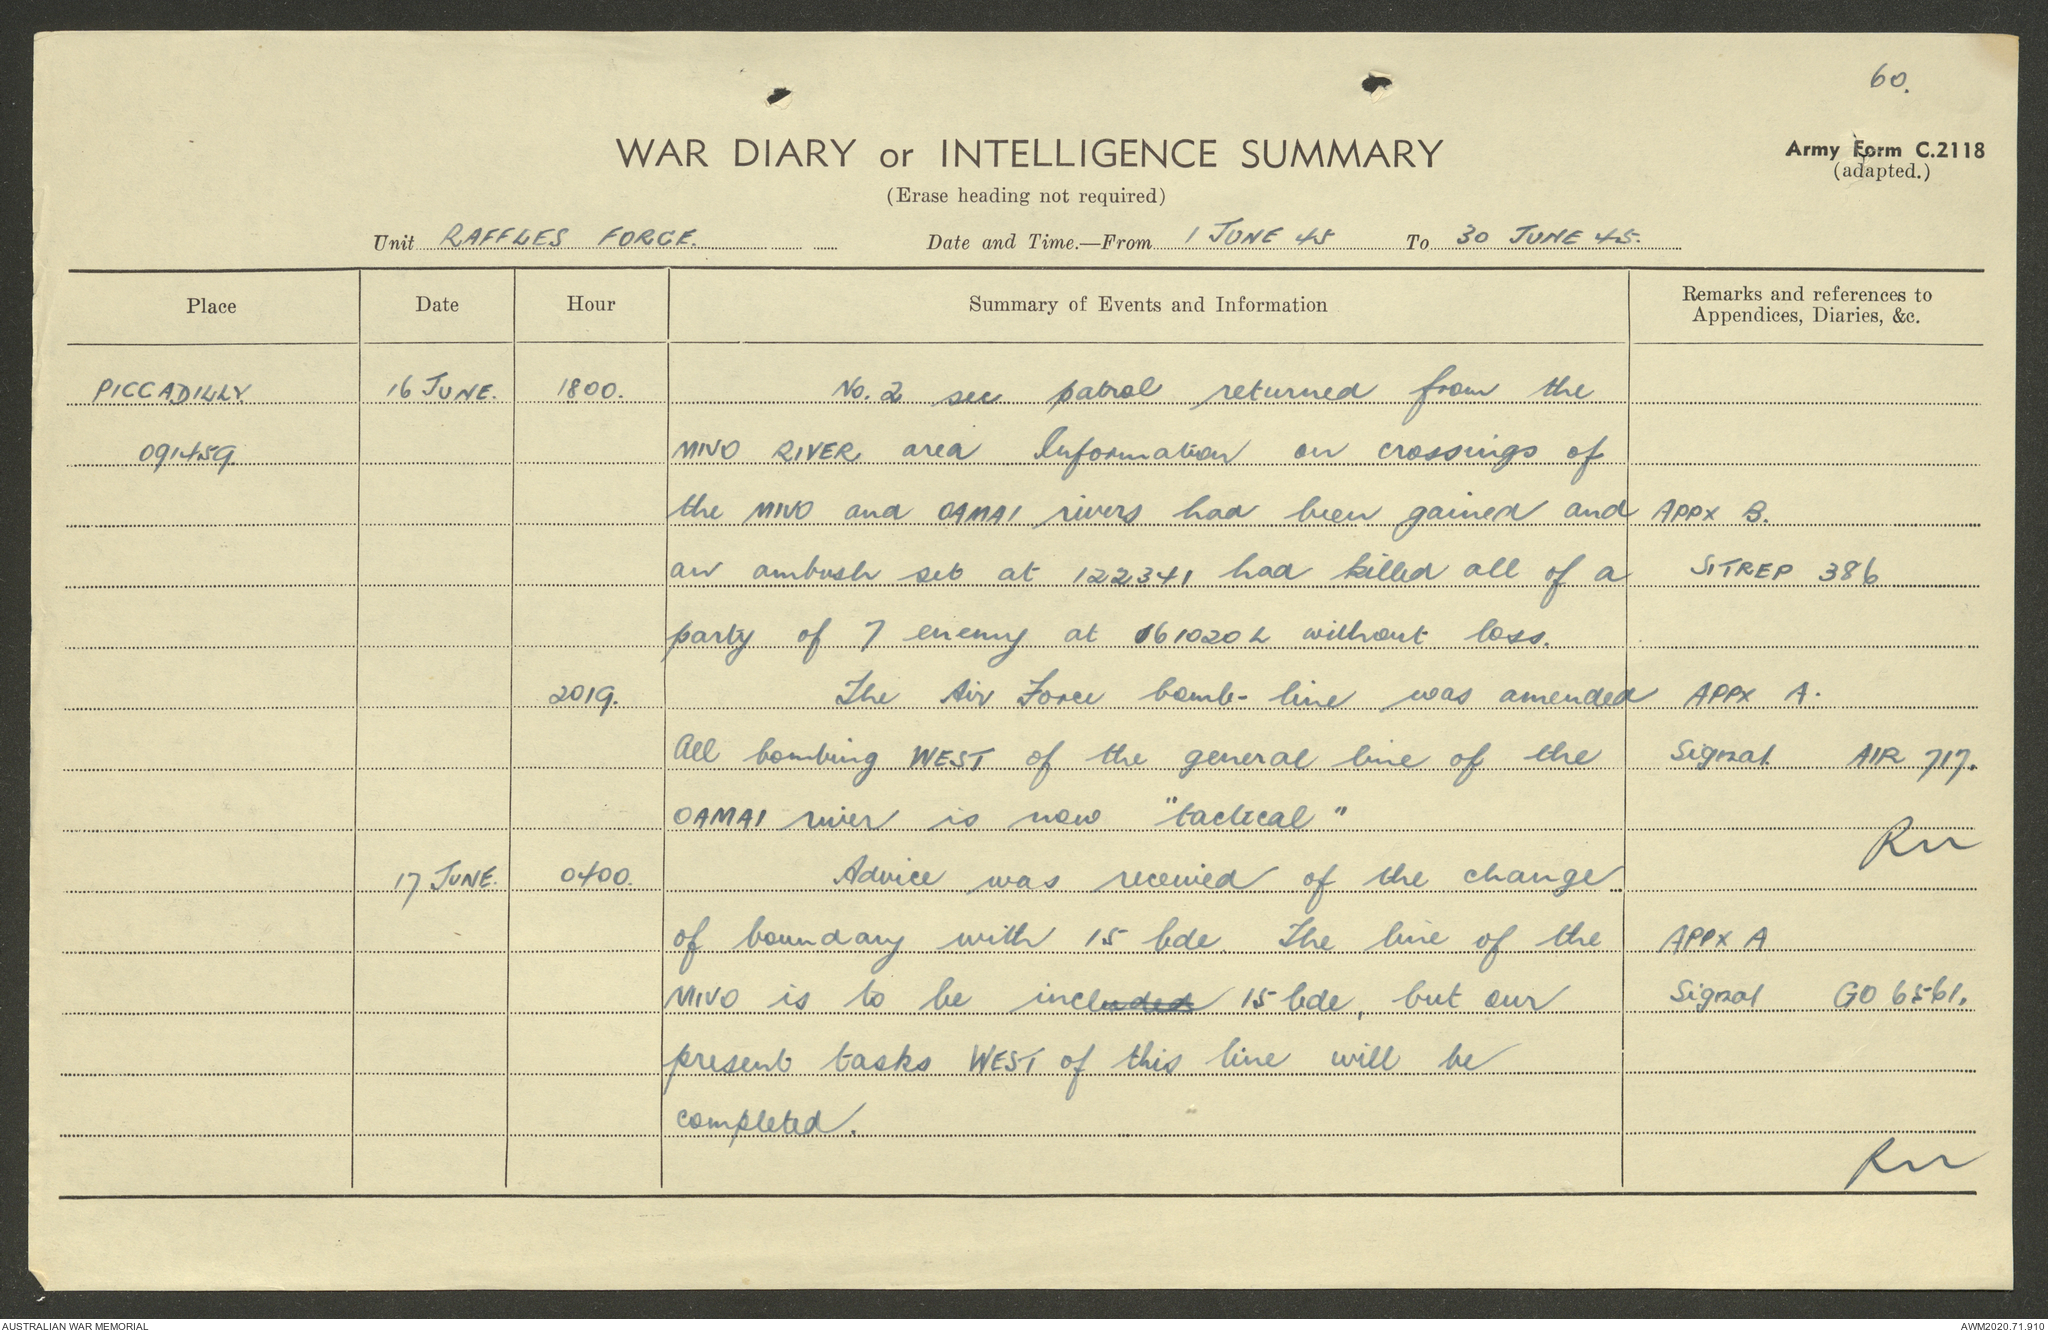 60.
WAR DIARY or INTELLIGENCE SUMMARY
Army Form C.2118
(adapted.)
(Erase heading not required)
Unit RAFFLES FORCE. Date and Time.—From 1 JUNE 45 To 30 JUNE 45.
Place Date Hour Summary of Events and Information Remarks and references to Appendices, Diaries, &c.
PICCADILLY 16 JUNE. 1800. No. 2 sec patrol returned from the
091459 MIVO RIVER area Information on crossings of
the MIVO and OAMAI rivers had been gained and APPX B.
an ambush set at 122341 had killed all of a SITREP 386
party of 7 enemy at 161020 L without loss.
2019. The Air Force bomb-line was amended APPX A.
All bombing WEST of the general line of the Signal AIR 717.
OAMAI river is now "tactical"
17 JUNE. 0400. Advice was received of the change
of boundary with 15 bde The line of the APPX A
MIVO is to be included 15 bde, but our Signal GO 6561.
present tasks WEST of this line will be
completed.
AUSTRALIAN WAR MEMORIAL
AWM2020.71.910